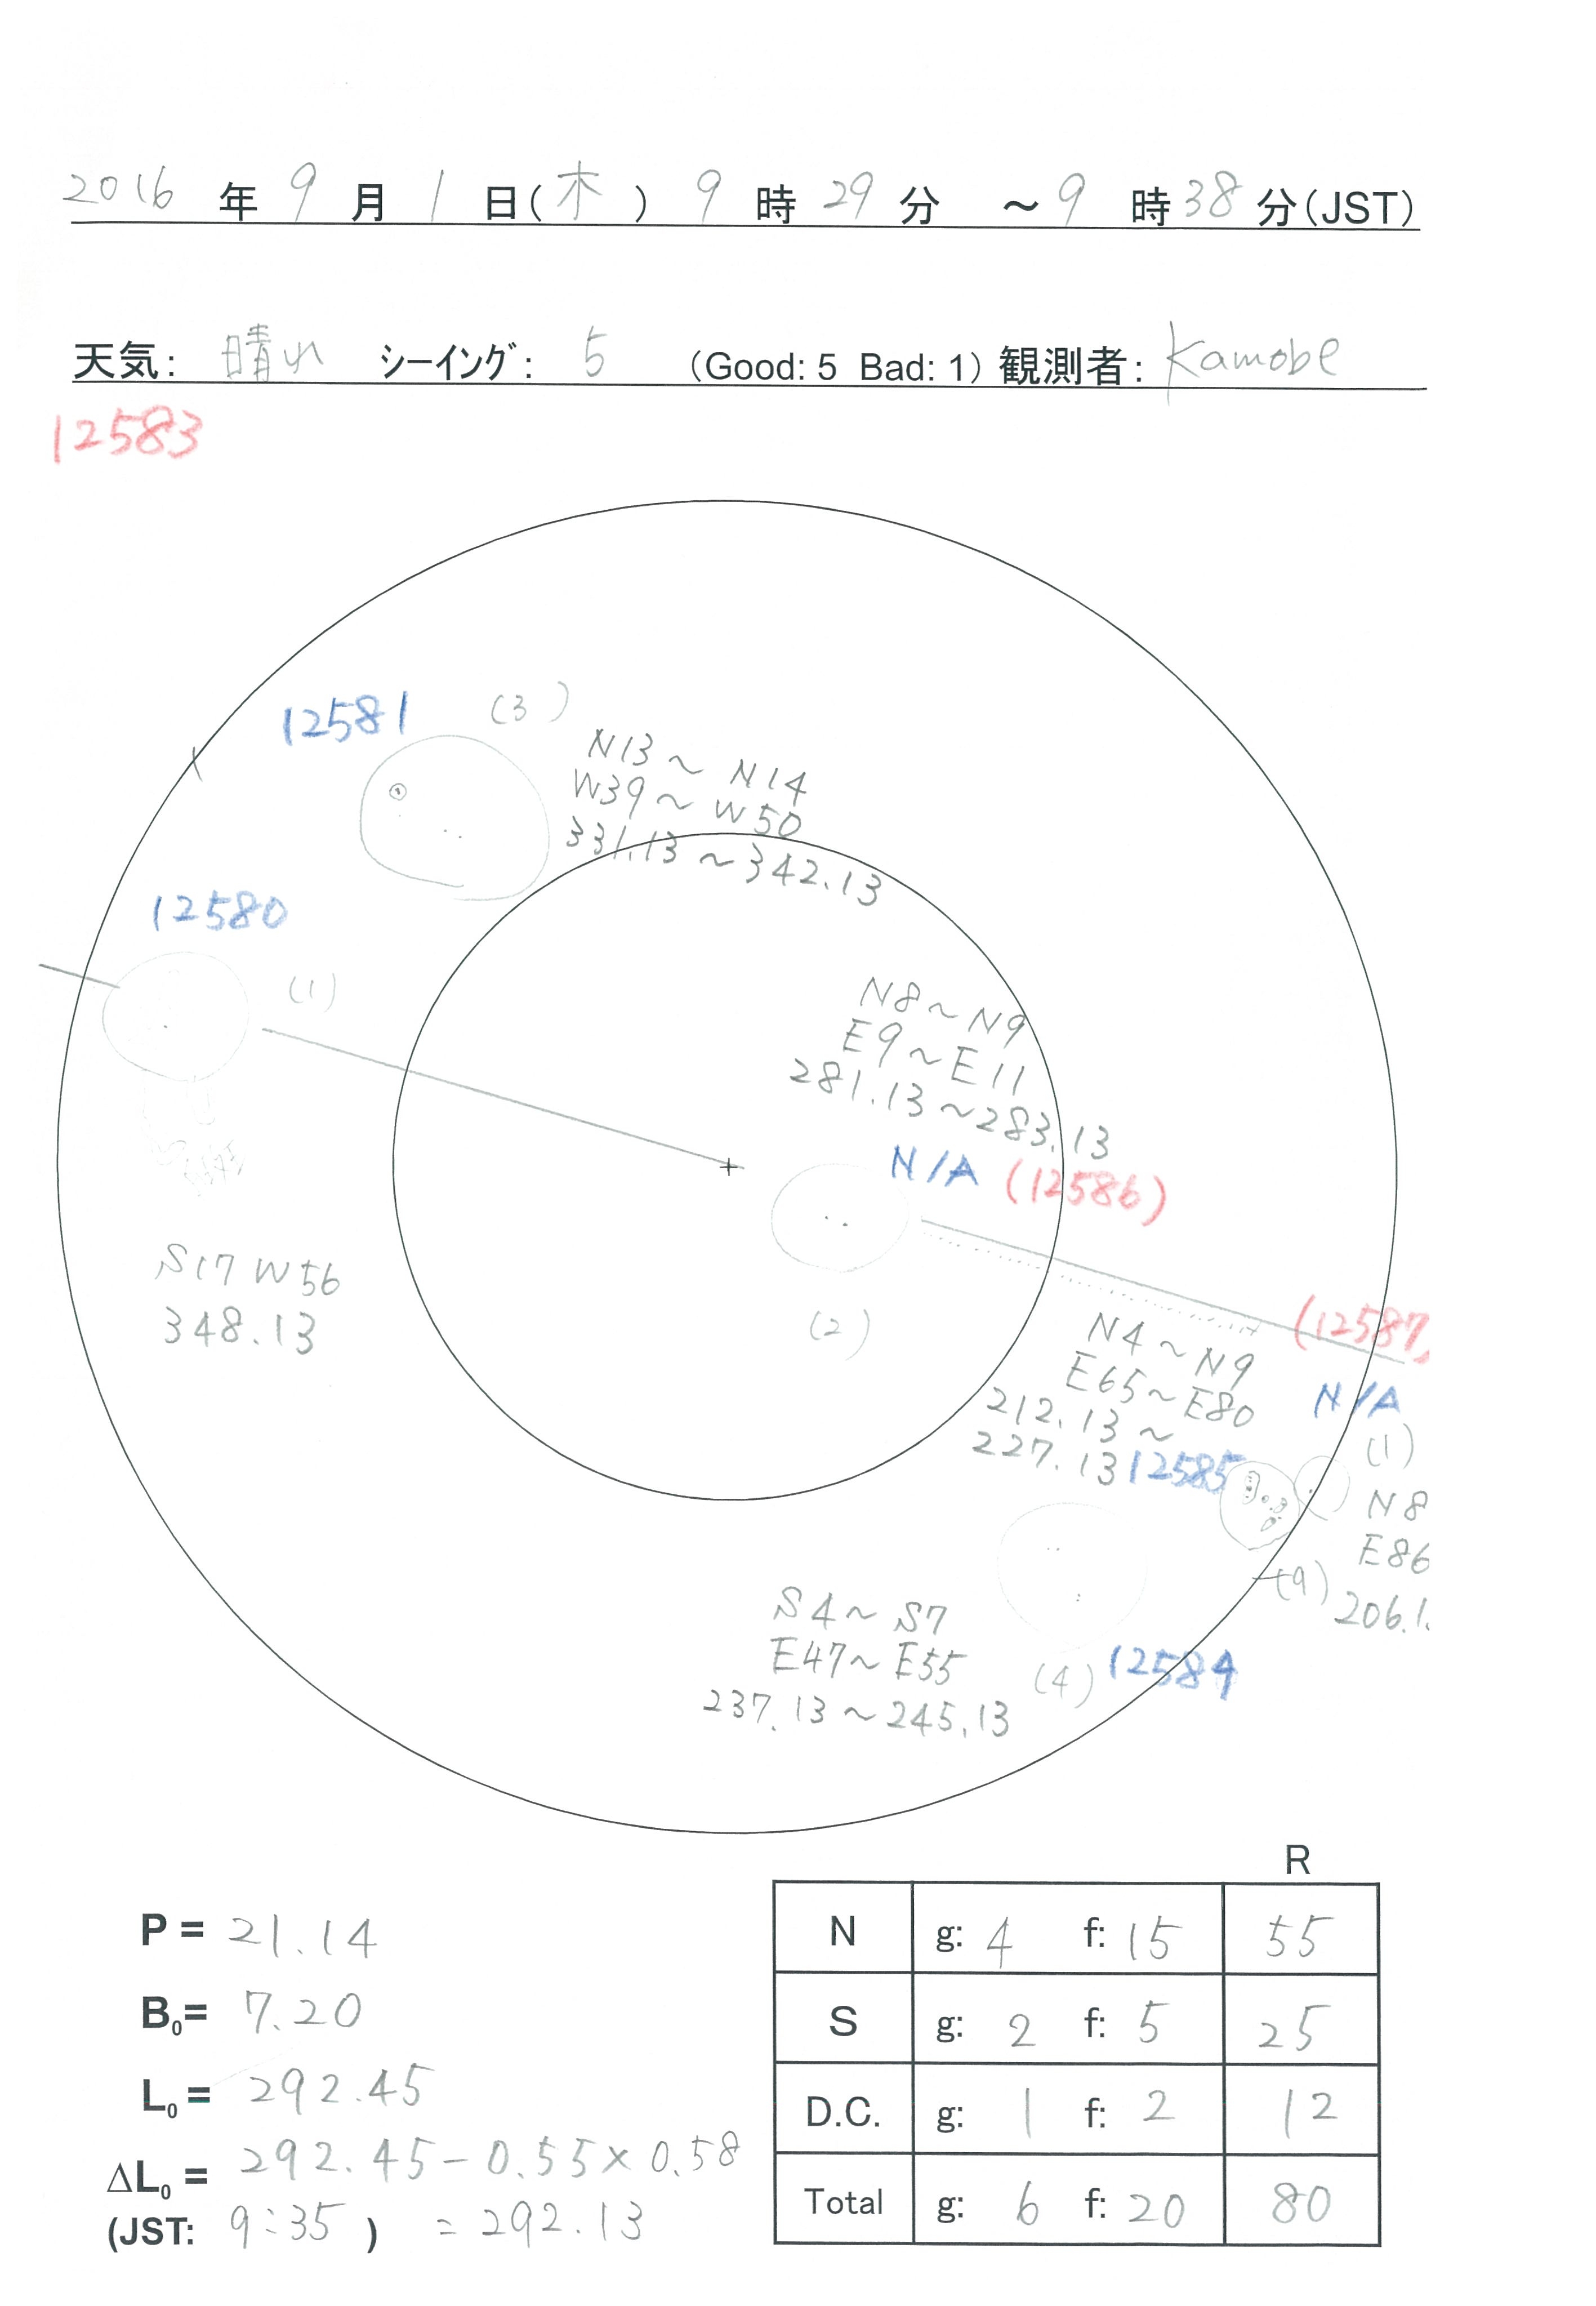 2016 年 9 月 1 日(木) 9 時 29 分 ～9 時 38 分(JST)
天気: 晴れ シーイング: 5 (Good: 5 Bad: 1) 観測者: Kamobe
12583
12581 (3)
N13～N14
W39～W50
331.13～342.13
12580
(1)
N8～N9
E9～E11
281.13～283.13
N/A (12586)
S17 W56
348.13
(2)
(12587
N4～N9
E65～E80
212.13～
227.13
N/A
(1)
12585
N8
E86
(9)
206.1
S4～S7
E47～E55
237.13～245.13
(4) 12584
R
P = 21.14
N g: 4 f: 15 55
B0= 7.20
S g: 2 f: 5 25
L0 = 292.45
D.C. g: 1 f: 2 12
ΔL0 = 292.45-0.55×0.58
(JST: 9:35 ) = 292.13
Total g: 6 f: 20 80